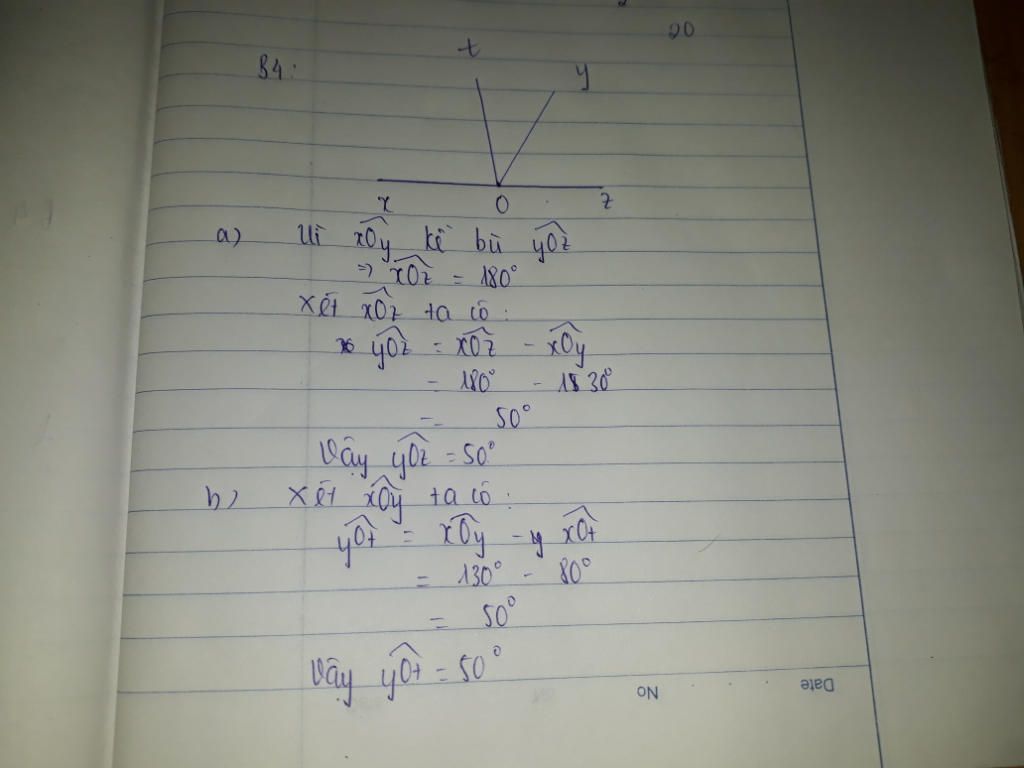 20
B4:
t
y
x O z
a) Vì xOy kề bù yOz
=> xOz = 180°
Xét xOz ta có:
yOz = xOz - xOy
= 180° - 130°
= 50°
Vậy yOz = 50°
b) Xét xOy ta có:
yOt = xOy - xOt
= 130° - 80°
= 50°
Vậy yOt = 50°
No Date